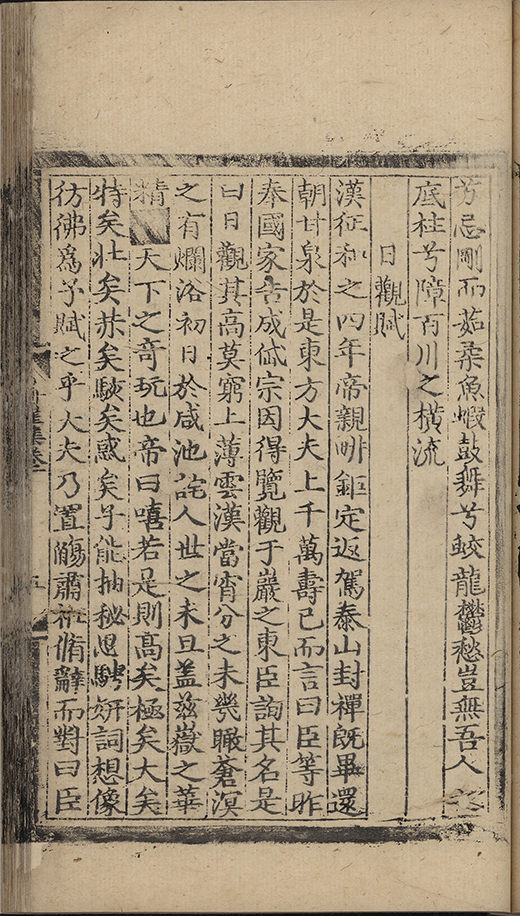 芳忌剛而茹柔魚蝦鼓舞兮蛟龍鬱愁豈無吾人
底柱兮障百川之橫流
日觀賦
漢征和之四年帝親畊鉅定返駕泰山封禪旣畢還
朝甘泉於是東方大夫上千萬壽已而言曰臣等昨
奉國家告成岱宗因得覽觀于巖之東臣詢其名是
曰日觀其高莫窮上薄雲漢當宵分之未幾瞰蒼溟
之有爛浴初日於咸池詫人世之未旦蓋茲嶽之華
精天下之奇玩也帝曰嘻若是則髙矣極矣大矣
特矣壯矣恭矣駭矣惑矣子能抽秘思騁妍詞想像
彷彿爲予賦之乎大夫乃置觴肅衽脩辭而對曰臣
集卷一
五